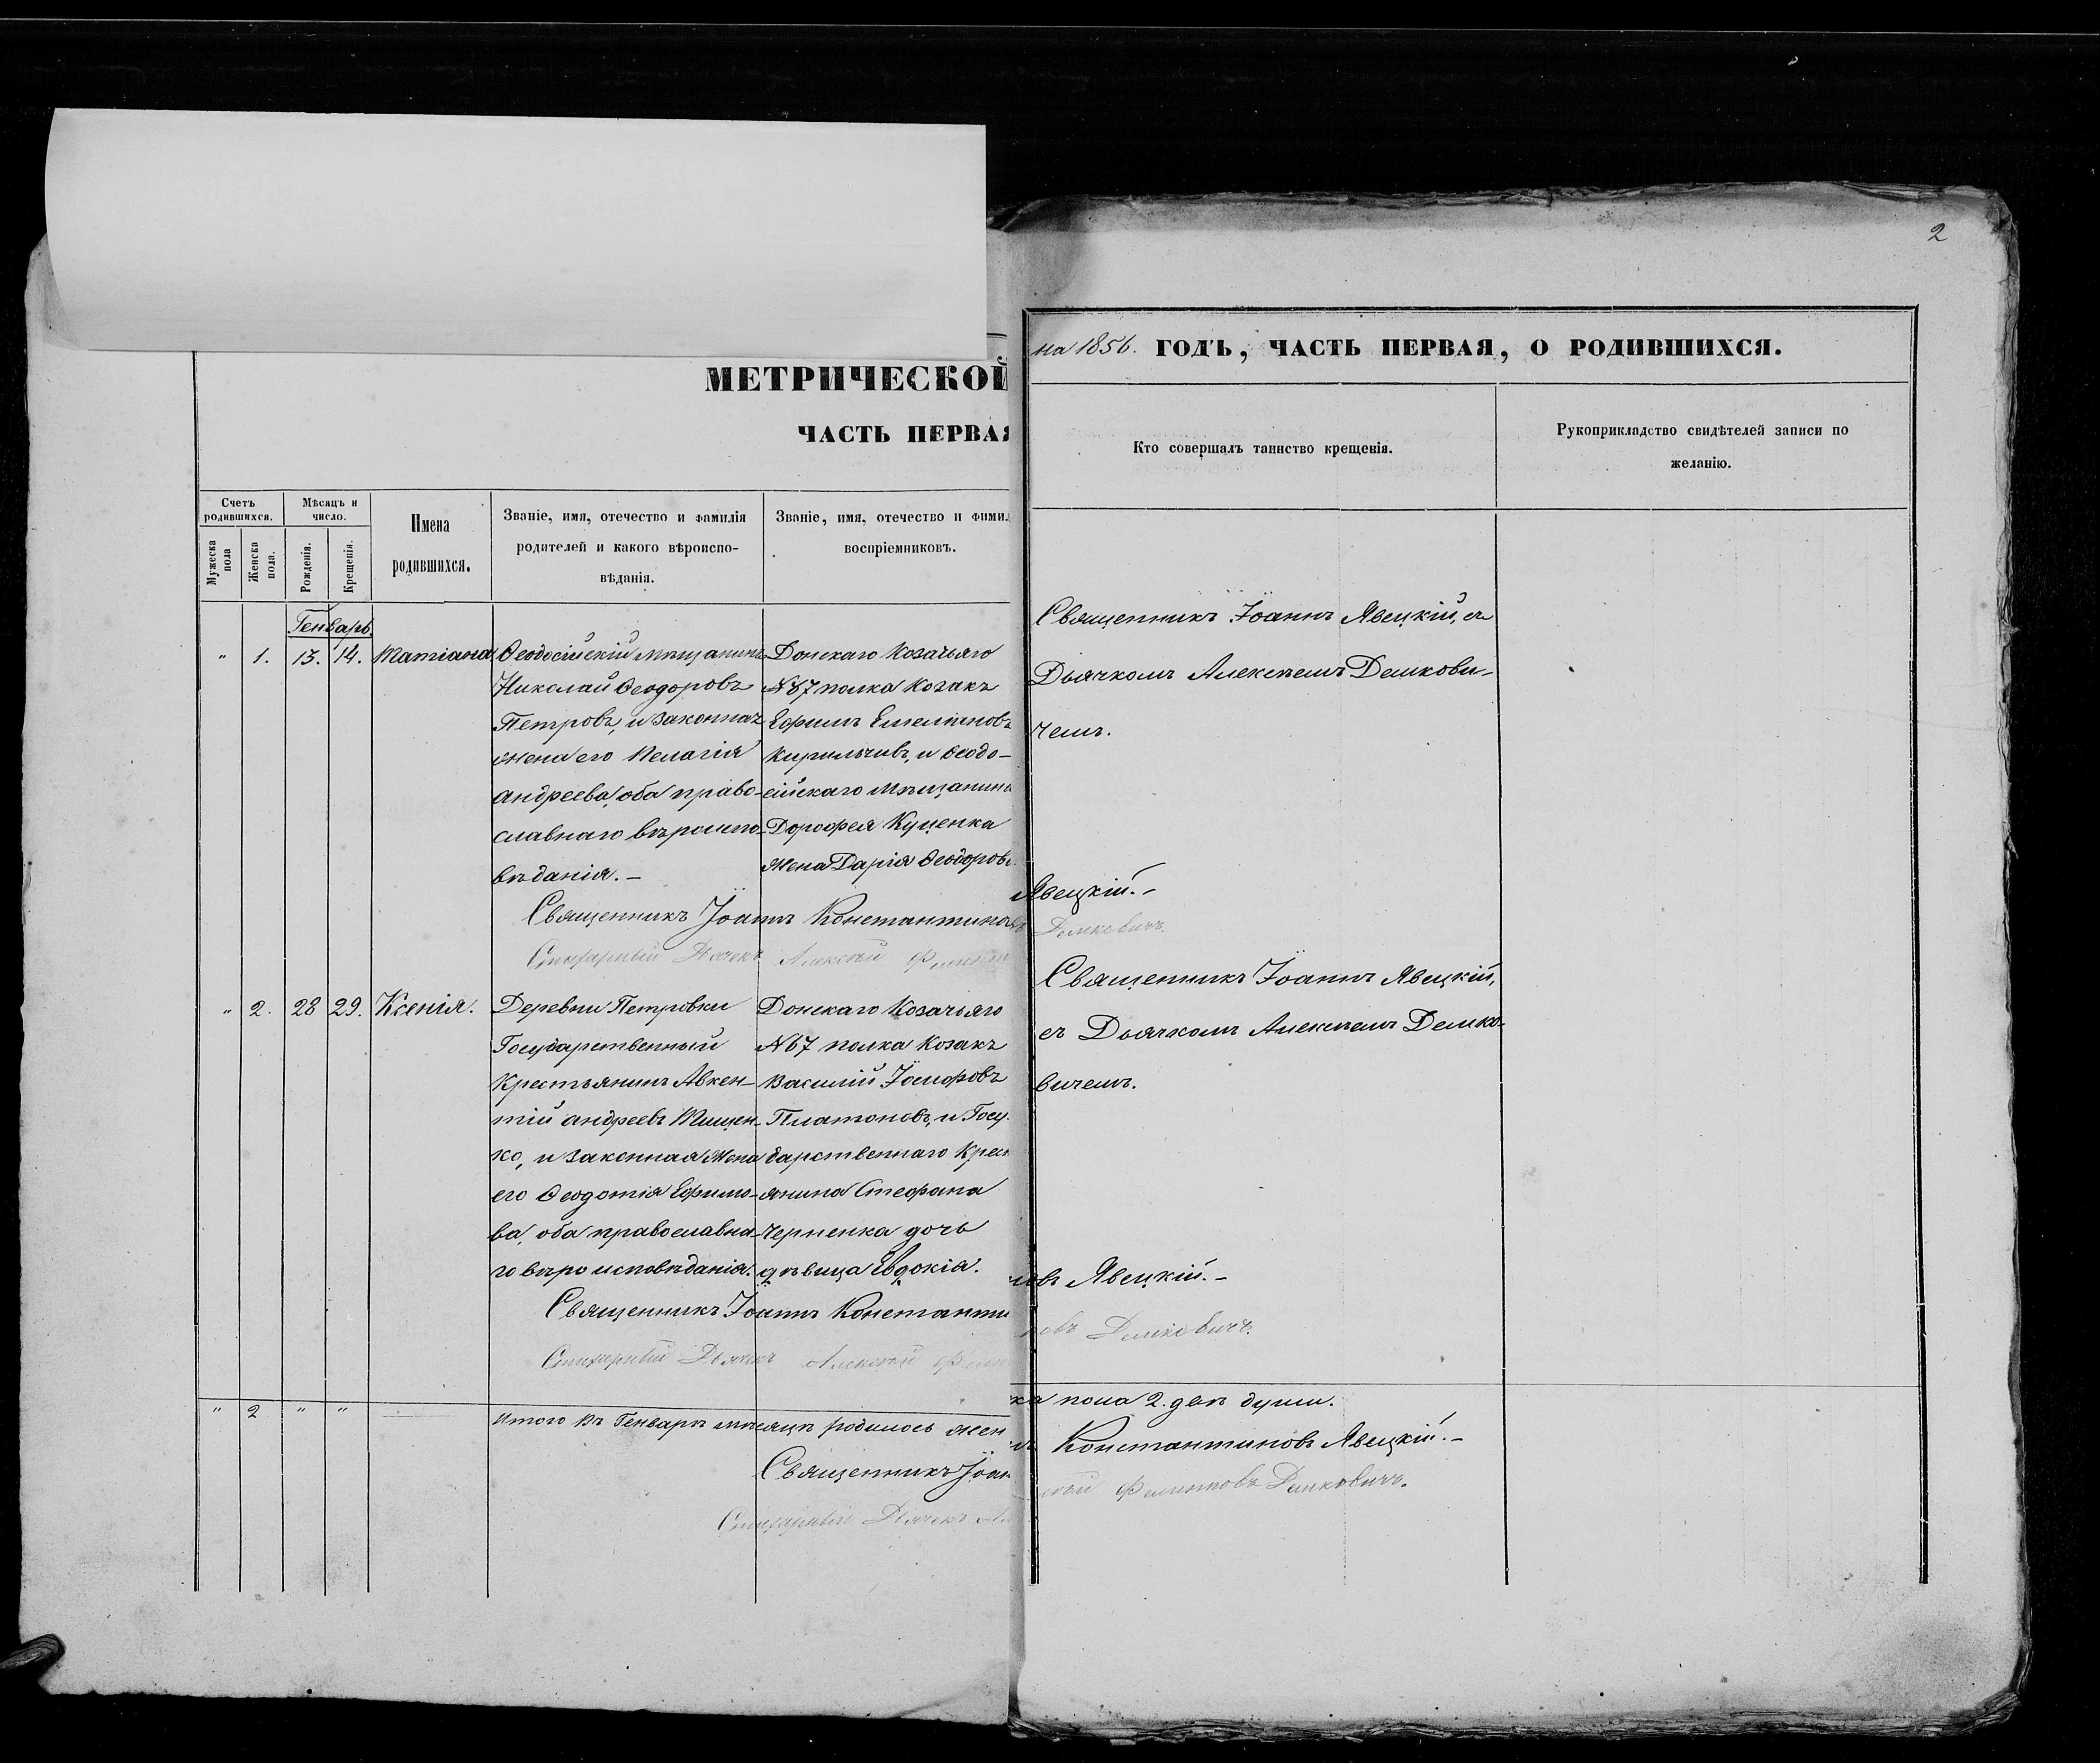 2
МЕТРИЧЕСКОЙ
ЧАСТЬ ПЕРВАЯ
на 1856. ГОДЪ, ЧАСТЬ ПЕРВАЯ, О РОДИВШИХСЯ.
Счетъ родившихся.
Мужеска пола
Женска пола.
Мѣсяцъ и число.
Рожденія.
Крещенія.
Имена родившихся.
Званіе, имя, отечество и фамилія
родителей и какого вѣроиспо-
вѣданія.
Званіе, имя, отечество и фимил
воспріемниковъ.
Кто совершалъ таинство крещенія.
Рукоприкладство свидѣтелей записи по
желанію.
Генварь.
" 1. 13. 14. Татіана
Ѳеодосійскій мѣщанинъ
Николай Ѳеодоровъ
Петровъ, и законная
жена его Пелагія
Андреева, оба право-
славнаго вѣроиспо-
вѣданія. –
Донскаго Козачьяго
№67 полка Козакъ
Ефимъ Емеліановъ
Кирильчивъ, и Ѳеодо-
сійскаго мѣщанина
Дорофея Куценка
жена Дарія Ѳеодоров
Священникъ Іоаннъ Явецкій, съ
Дьячкомъ Алексѣемъ Демкови-
чемъ.
Священникъ Іоаннъ Константиновъ Явецкій. –
Стихарный Дьячекъ Алексѣй Демковичъ.
" 2. 28 29. Ксенія.
Деревни Петровки
Государственный
Крестьянинъ Авкен-
тій Андреевъ Тищен-
ко, и законная жена
его Ѳеодотія Ефимо-
ва, оба православна-
го вѣроисповѣданія.
Донскаго Козачьяго
№67 полка Козакъ
Василій Іосифовъ
Платоновъ, и Госу-
дарственнаго Крест
янина Стефана
Черненка дочь
дѣвица Евдокія.
Священникъ Іоаннъ Явецкій,
съ Дьячкомъ Алексѣемъ Демко-
вичемъ.
Священникъ Іоаннъ Константиновъ Явецкій. –
Стихарный Дьячекъ Алексѣй Демковичъ.
" 2 " "
Итого въ Генварѣ мѣсяцѣ родилось женска пола 2. двѣ души.
Священникъ Іоаннъ Константиновъ Явецкій. –
Стихарный Дьячекъ Алексѣй Демковичъ.